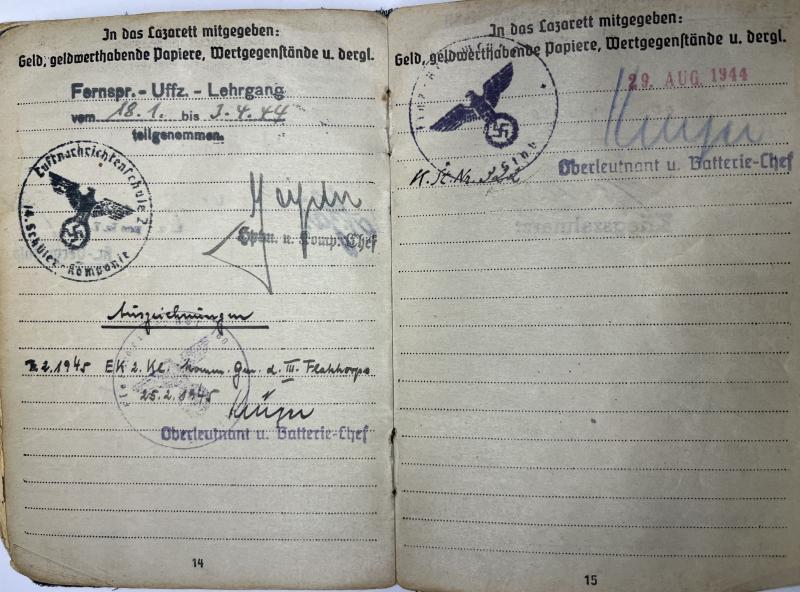 In das Lazarett mitgegeben:
Geld, geldwerthabende Papiere, Wertgegenstände u. dergl.
Fernspr.-Uffz.-Lehrgang
vom 18.1. bis 3.4.44
teilgenommen.
Luftnachrichtenschule 2
14. Schüler-Kompanie
Hptm. u. Komp. Chef
Auszeichnungen
2.1945 EK 2. Kl. Komm. Gen. d. III. Flakkorps
25.2.1945
Oberleutnant u. Batterie-Chef
14
In das Lazarett mitgegeben:
Geld, geldwerthabende Papiere, Wertgegenstände u. dergl.
29. AUG 1944
Oberleutnant u. Batterie-Chef
15